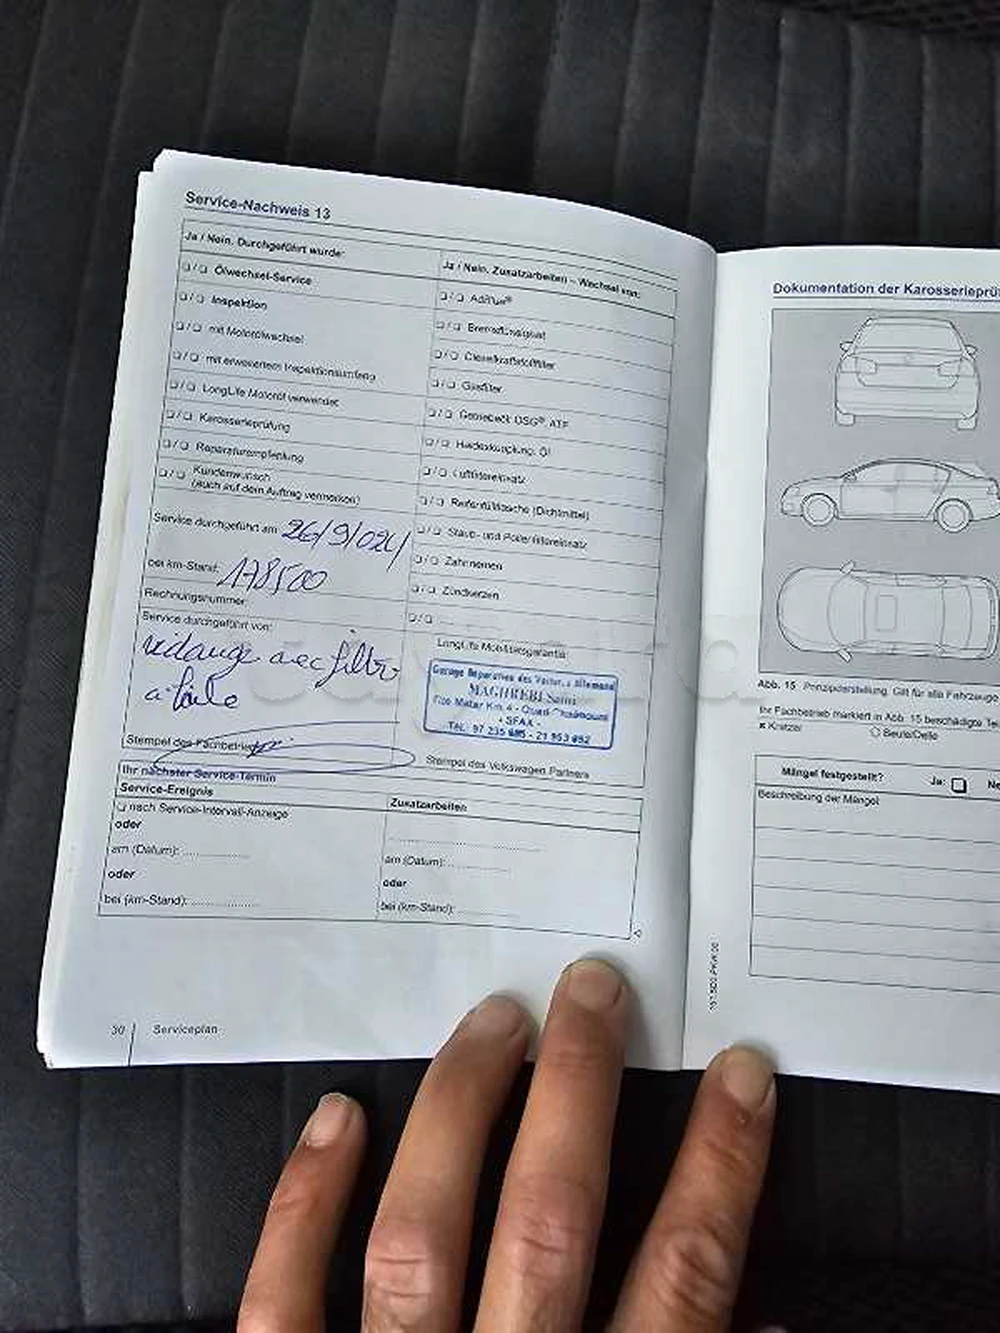 Service-Nachweis 13
Ja / Nein. Durchgeführt wurde:
❑ / ❑ Ölwechsel-Service
❑ / ❑ Inspektion
❑ / ❑ mit Motorölwechsel
❑ / ❑ mit erweitertem Inspektionsumfang
❑ / ❑ LongLife Motoröl verwendet
❑ / ❑ Karosserieprüfung
❑ / ❑ Reparaturempfehlung
❑ / ❑ Kundenwunsch
(auch auf dem Auftrag vermerken)
Service durchgeführt am 26/9/024
bei km-Stand: 178500
Rechnungsnummer
Service durchgeführt von:
vidange avec filtre
a huile
Stempel des Fachbetriebs
Ja / Nein. Zusatzarbeiten – Wechsel von:
❑ / ❑ AdBlue®
❑ / ❑ Bremsflüssigkeit
❑ / ❑ Dieselkraftstofffilter
❑ / ❑ Gasfilter
❑ / ❑ Getriebeöl: DSG®, ATF
❑ / ❑ Haldexkupplung: Öl
❑ / ❑ Luftfiltereinsatz
❑ / ❑ Reifenfüllflasche (Dichtmittel)
❑ / ❑ Staub- und Pollenfiltereinsatz
❑ / ❑ Zahnriemen
❑ / ❑ Zündkerzen
❑ / ❑
LongLife Mobilitätsgarantie:
Garage Réparation des Voitures Allemand
MAGHREBI Sami
Rte Matar Km 4 - Oued Chaabouni
- SFAX -
Tél. 97 235 - 21 953 852
Stempel des Volkswagen Partners
Ihr nächster Service-Termin
Service-Ereignis
❑ nach Service-Intervall-Anzeige
oder
am (Datum):
oder
bei (km-Stand):
Zusatzarbeiten
am (Datum):
oder
bei (km-Stand):
30 Serviceplan
Dokumentation der Karosserieprü
Abb. 15 Prinzipdarstellung. Gilt für alle Fahrzeuge
Ihr Fachbetrieb markiert in Abb. 15 beschädigte Tei
x Kratzer
○ Beule/Delle
Mängel festgestellt? Ja: ❑ Ne
Beschreibung der Mängel: